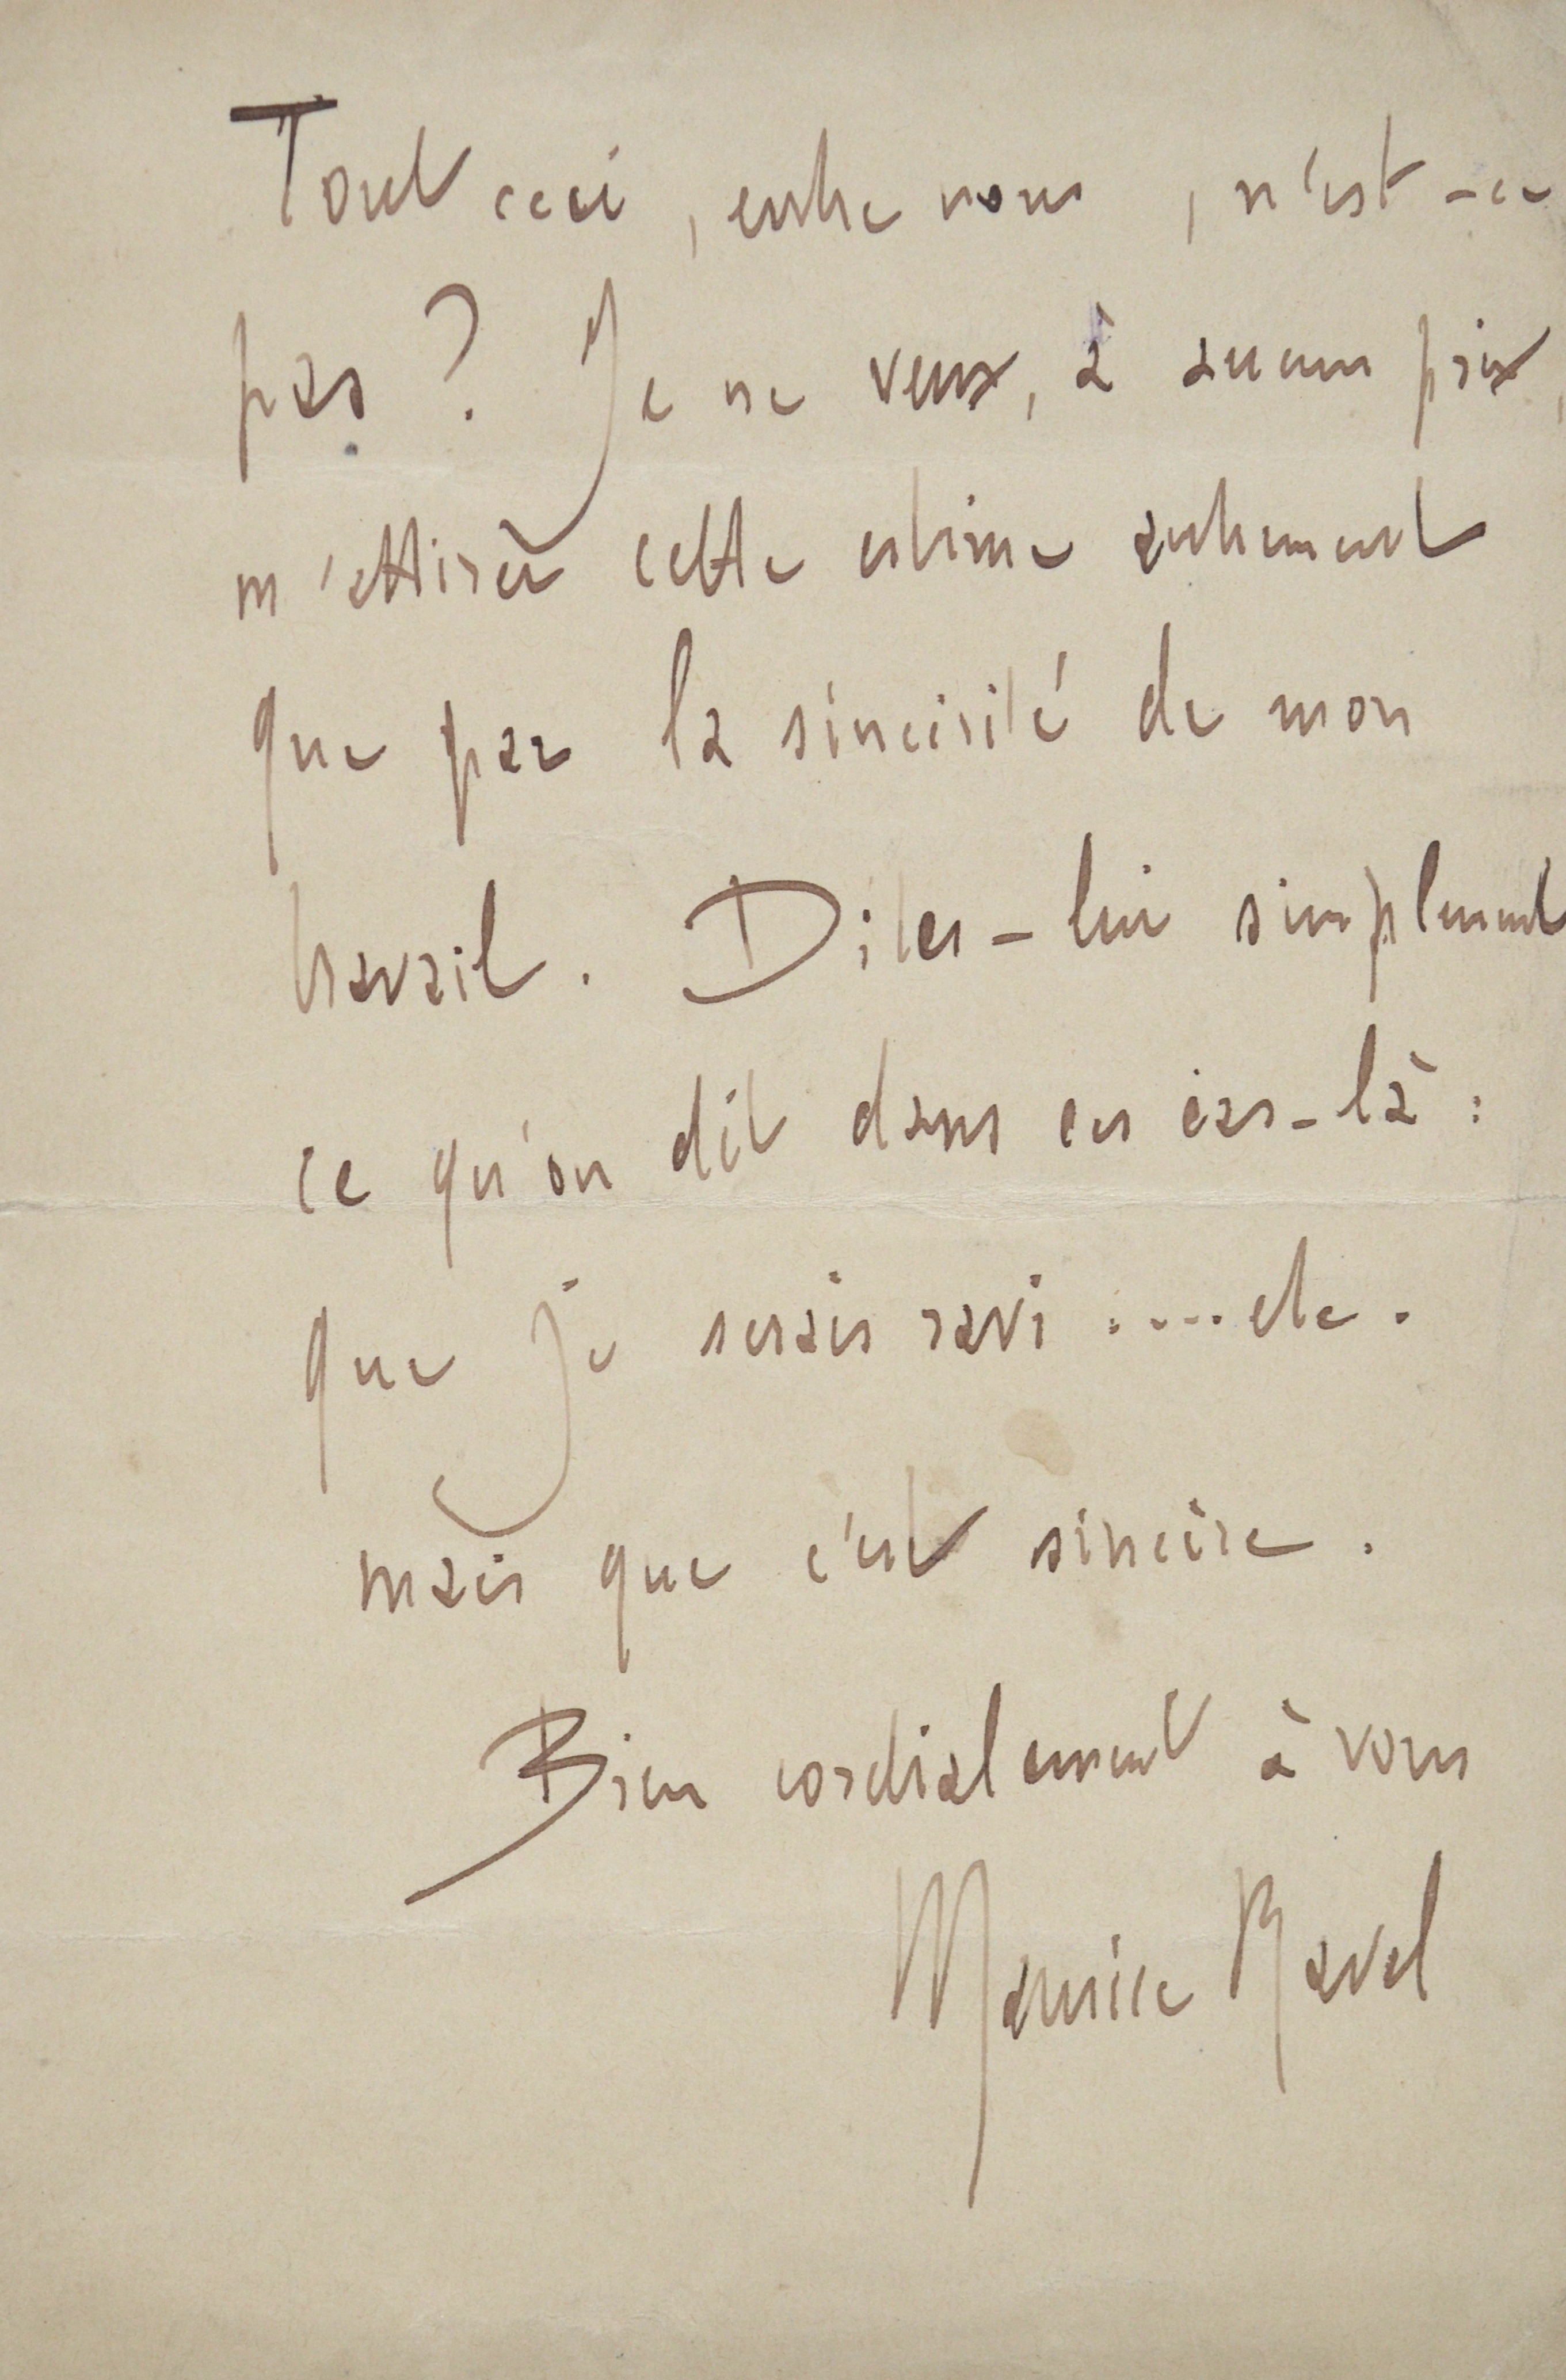 Tout ceci, entre nous, n'est-ce
pas ? Je ne veux, à aucun prix,
m'attirer cette estime autrement
que par la sincérité de mon
travail. Dites-lui simplement
ce qu'on dit dans ces cas-là :
que je serais ravi ..... etc.
mais que c'est sincère.
Bien cordialement à vous
Maurice Ravel